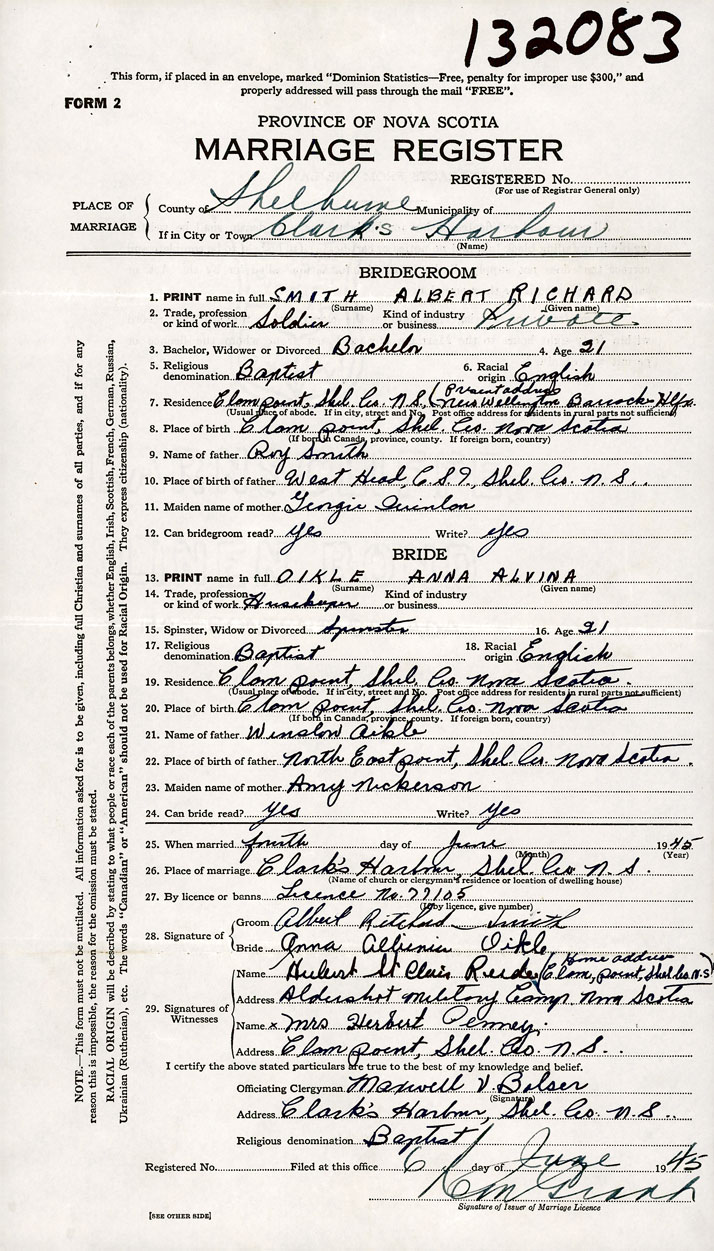 132083
This form, if placed in an envelope, marked "Dominion Statistics—Free, penalty for improper use $300," and
properly addressed will pass through the mail "FREE".
FORM 2
PROVINCE OF NOVA SCOTIA
MARRIAGE REGISTER
REGISTERED No.
(For use of Registrar General only)
PLACE OF MARRIAGE
County of Shelburne Municipality of
If in City or Town Clark's Harbour
(Name)
BRIDEGROOM
1. PRINT name in full SMITH ALBERT RICHARD
(Surname) (Given name)
2. Trade, profession or kind of work Soldier Kind of industry or business Private
3. Bachelor, Widower or Divorced Bachelor 4. Age 21
5. Religious denomination Baptist 6. Racial origin English
7. Residence Clam point, Shel. Co. N.S. (Present address Wellington Barracks Hlfx.
(Usual place of abode. If in city, street and No. Post office address for residents in rural parts not sufficient)
8. Place of birth Clam point, Shel. Co. Nova Scotia
(If born in Canada, province, county. If foreign born, country)
9. Name of father Roy Smith
10. Place of birth of father West Head, C.S.I., Shel. Co. N.S.
11. Maiden name of mother Georgie Quinlan
12. Can bridegroom read? yes Write? yes
BRIDE
13. PRINT name in full OIKLE ANNA ALVINA
(Surname) (Given name)
14. Trade, profession or kind of work Kind of industry or business
15. Spinster, Widow or Divorced Spinster 16. Age 21
17. Religious denomination Baptist 18. Racial origin English
19. Residence Clam point, Shel. Co. Nova Scotia.
(Usual place of abode. If in city, street and No. Post office address for residents in rural parts not sufficient)
20. Place of birth Clam point, Shel. Co. Nova Scotia
(If born in Canada, province, county. If foreign born, country)
21. Name of father Winslow Oikle
22. Place of birth of father North East point, Shel. Co. Nova Scotia.
23. Maiden name of mother Amy Nickerson
24. Can bride read? yes Write? yes
25. When married fourth day of June 1945
(Month) (Year)
26. Place of marriage Clark's Harbour, Shel. Co. N.S.
(Name of church or clergyman's residence or location of dwelling house)
27. By licence or banns Licence No. 77105
(If by licence, give number)
28. Signature of
Groom Albert Ritchard Smith
Bride Anna Oikle
29. Signatures of Witnesses
Name Hubert St Clair (Home address Clam, point, Shel. Co. N.S)
Address Aldershot Military Camp Nova Scotia
Name x Mrs Herbert Penney.
Address Clam point, Shel. Co. N.S.
I certify the above stated particulars are true to the best of my knowledge and belief.
Officiating Clergyman Maxwell V. Bolser
(Signature)
Address Clark's Harbour, Shel. Co. N.S.
Religious denomination Baptist
Registered No. Filed at this office 6 day of June 1945
Signature of Issuer of Marriage Licence
[SEE OTHER SIDE]
NOTE.—This form must not be mutilated. All information asked for is to be given, including full Christian and surnames of all parties, and if for any
reason this is impossible, the reason for the omission must be stated.
RACIAL ORIGIN will be described by stating to what people or race each of the parents belongs, whether English, Irish, Scottish, French, German, Russian,
Ukrainian (Ruthenian), etc. The words "Canadian" or "American" should not be used for Racial Origin. They express citizenship (nationality).